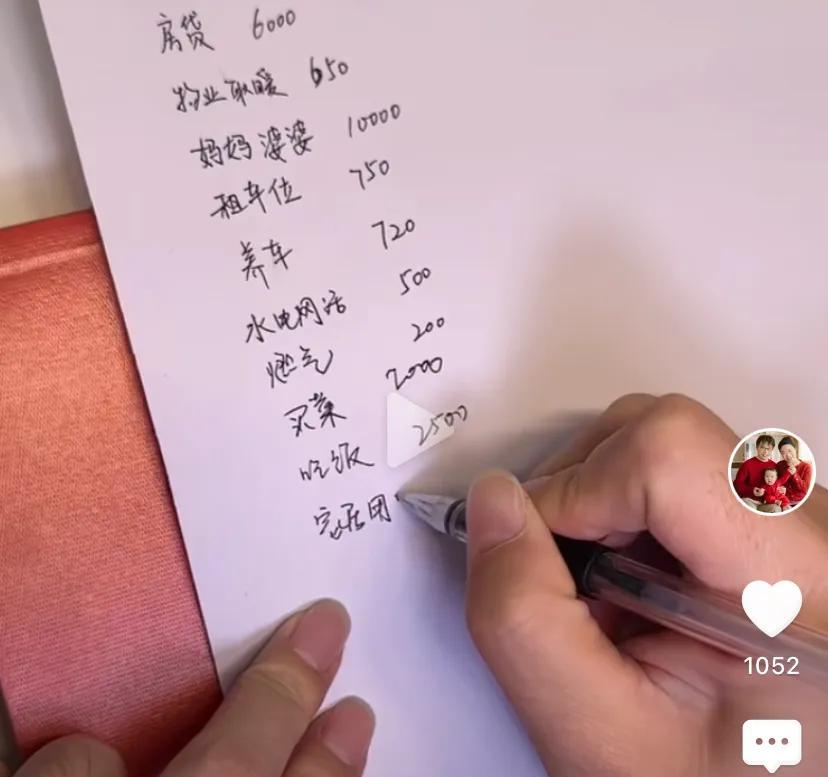 房贷 6000
物业取暖 650
妈妈婆婆 10000
租车位 750
养车 720
水电网话 500
燃气 200
买菜 2000
吃饭 2500
家居用
1052